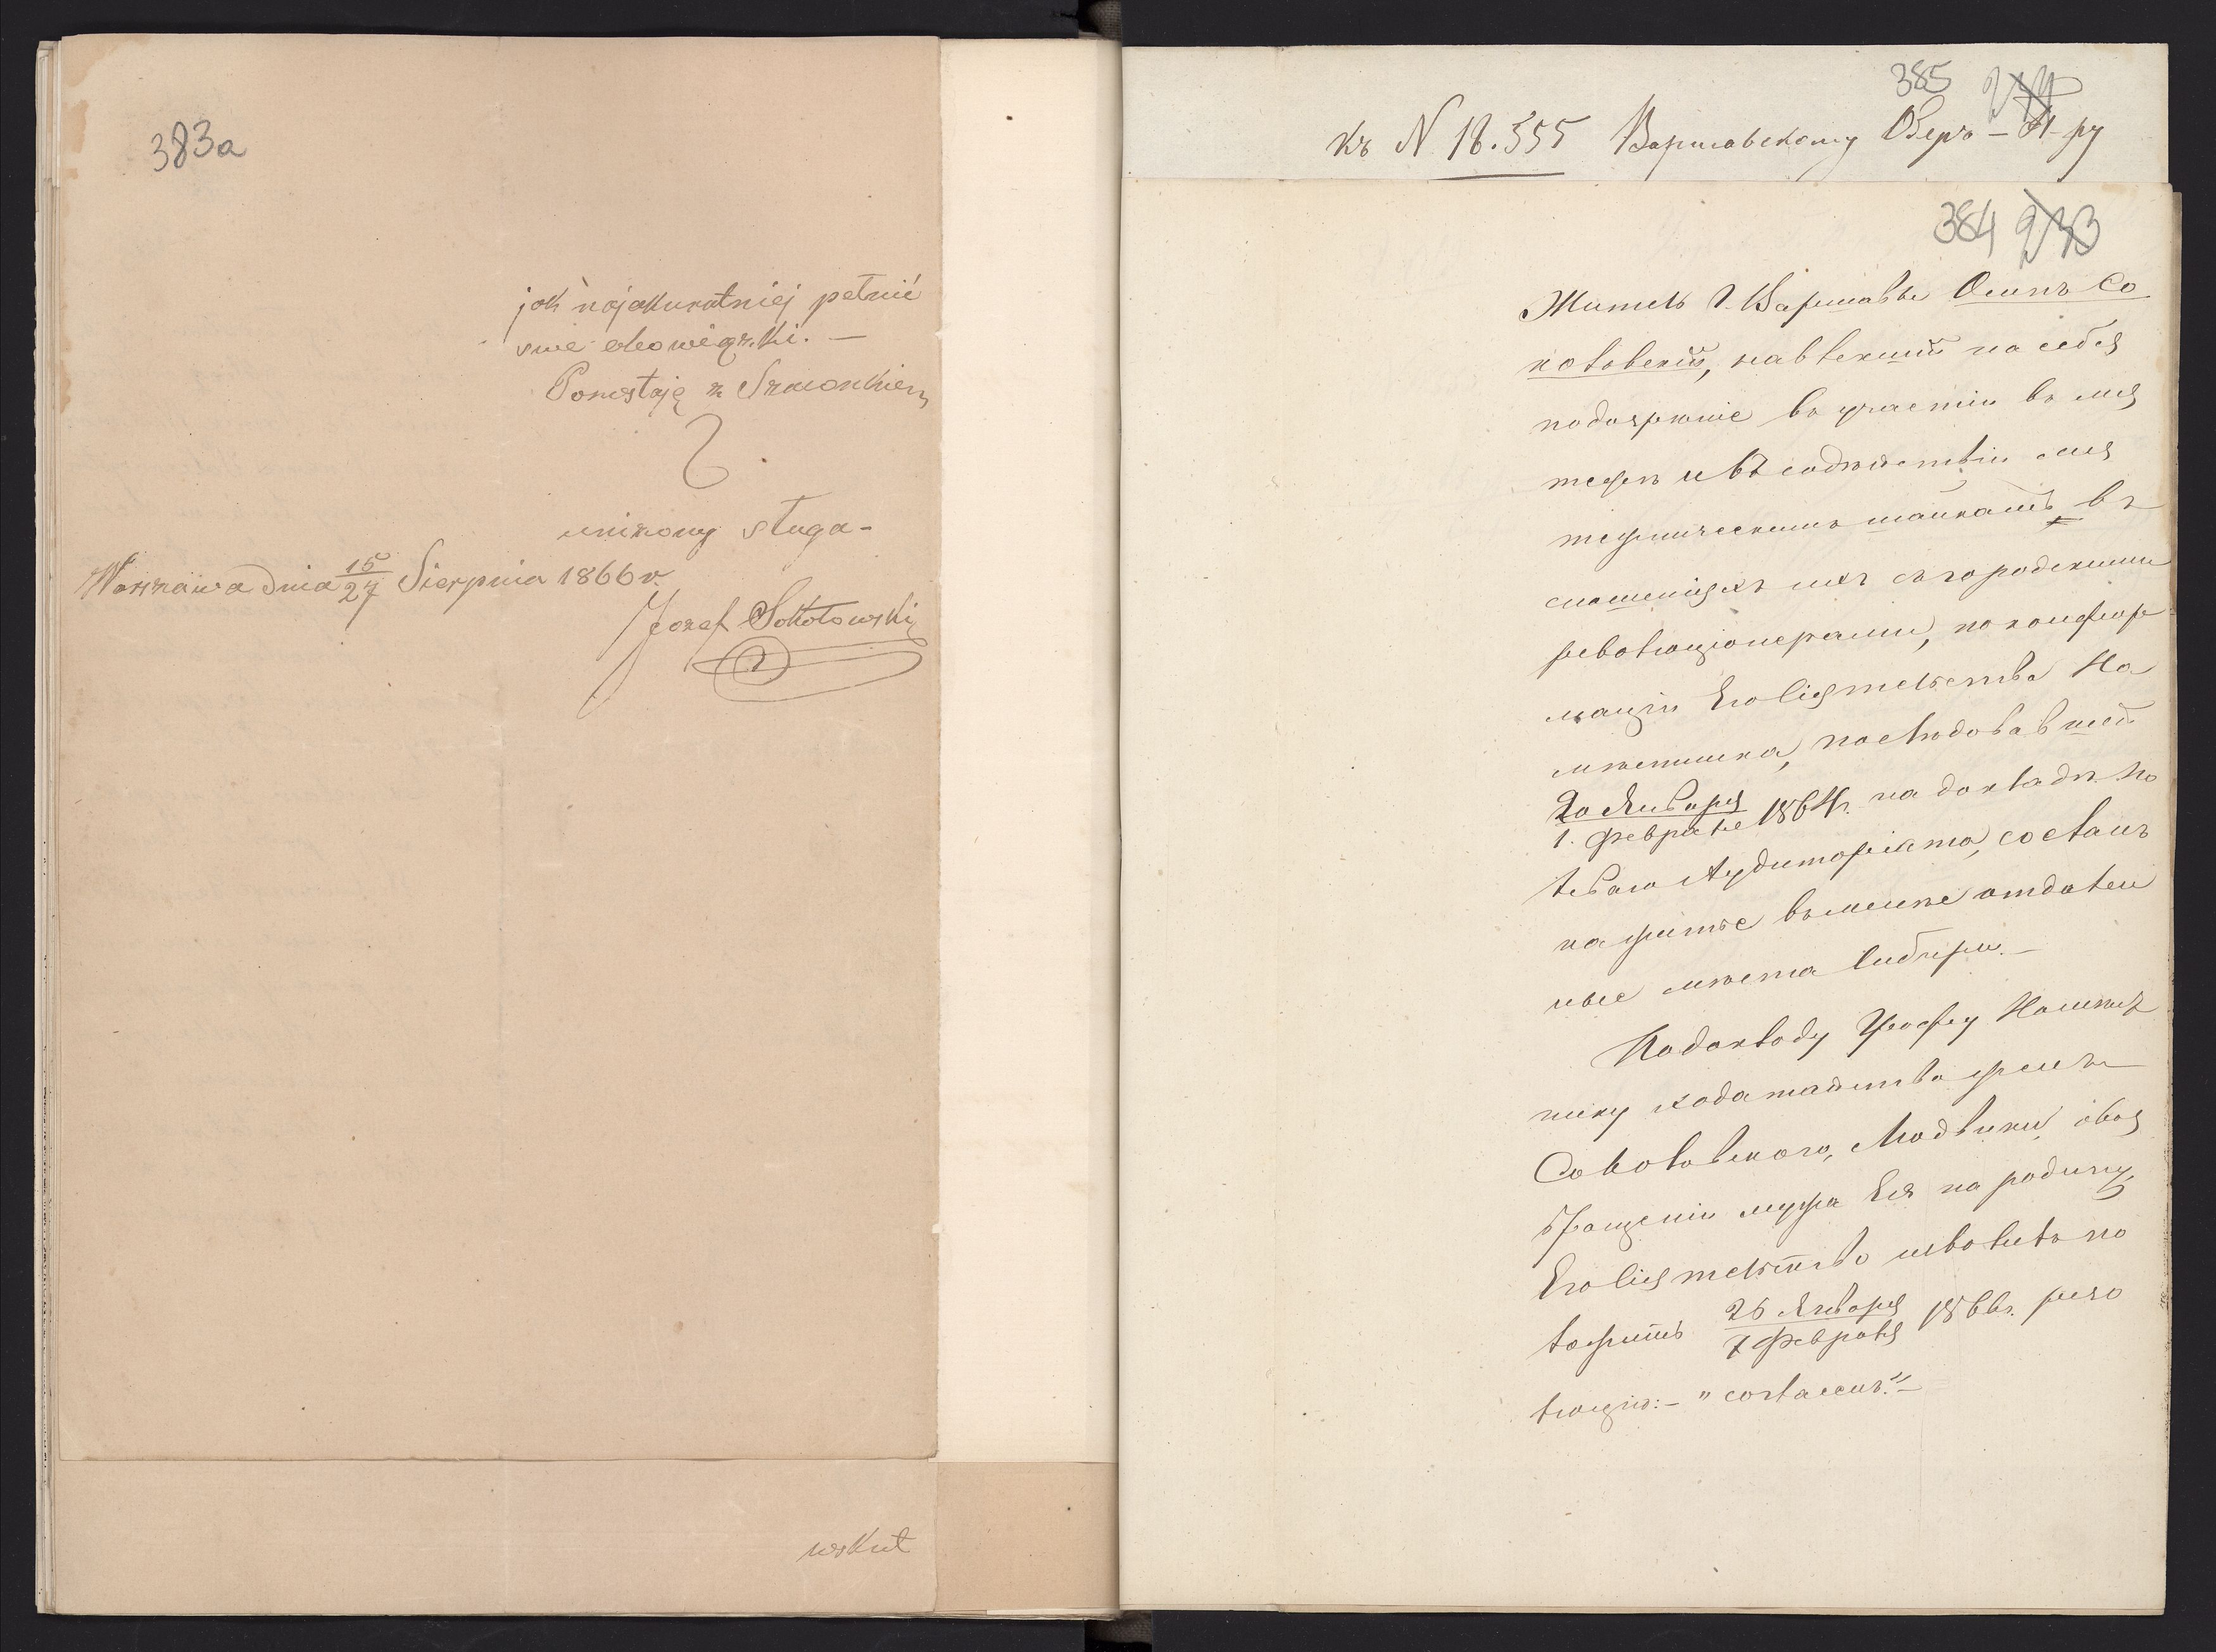 383a
jak najakuratniej pełnić
swe obowiązki. —
Pozostaję z Szacunkiem
uniżony sługa -
Warszawa dnia 15/27 Sierpnia 1866 r.
Jozef Sokołowski
wskut
385
къ N 18.555 Варшавскому Оберъ - П-ру
384 233
Житель г. Варшавы Осипъ Со
коловскій, навлекшій на себя
подозрѣніе въ участіи въ мя
тежѣ и въ содѣйствіи мя
тежническимъ шайкамъ, въ
сношеніяхъ ихъ съ городскими
революціонерами, по конфир
маціи Его Сіятельства На
мѣстника, послѣдовавшей
20 Января
1. Февраля 1864 г. на докладѣ По
леваго Аудиторіата, сосланъ
на житье въ менѣе отдален
ныя мѣста Сибири. —
По докладу Графу Намѣст
нику ходатайства жены
Соколовскаго, Людвики, о воз
вращеніи мужа Ея на родину,
Его Сіятельство изволилъ по
ложить 26 Января
7 Февраля 1866 г. резо
люцію: — "согласенъ." —